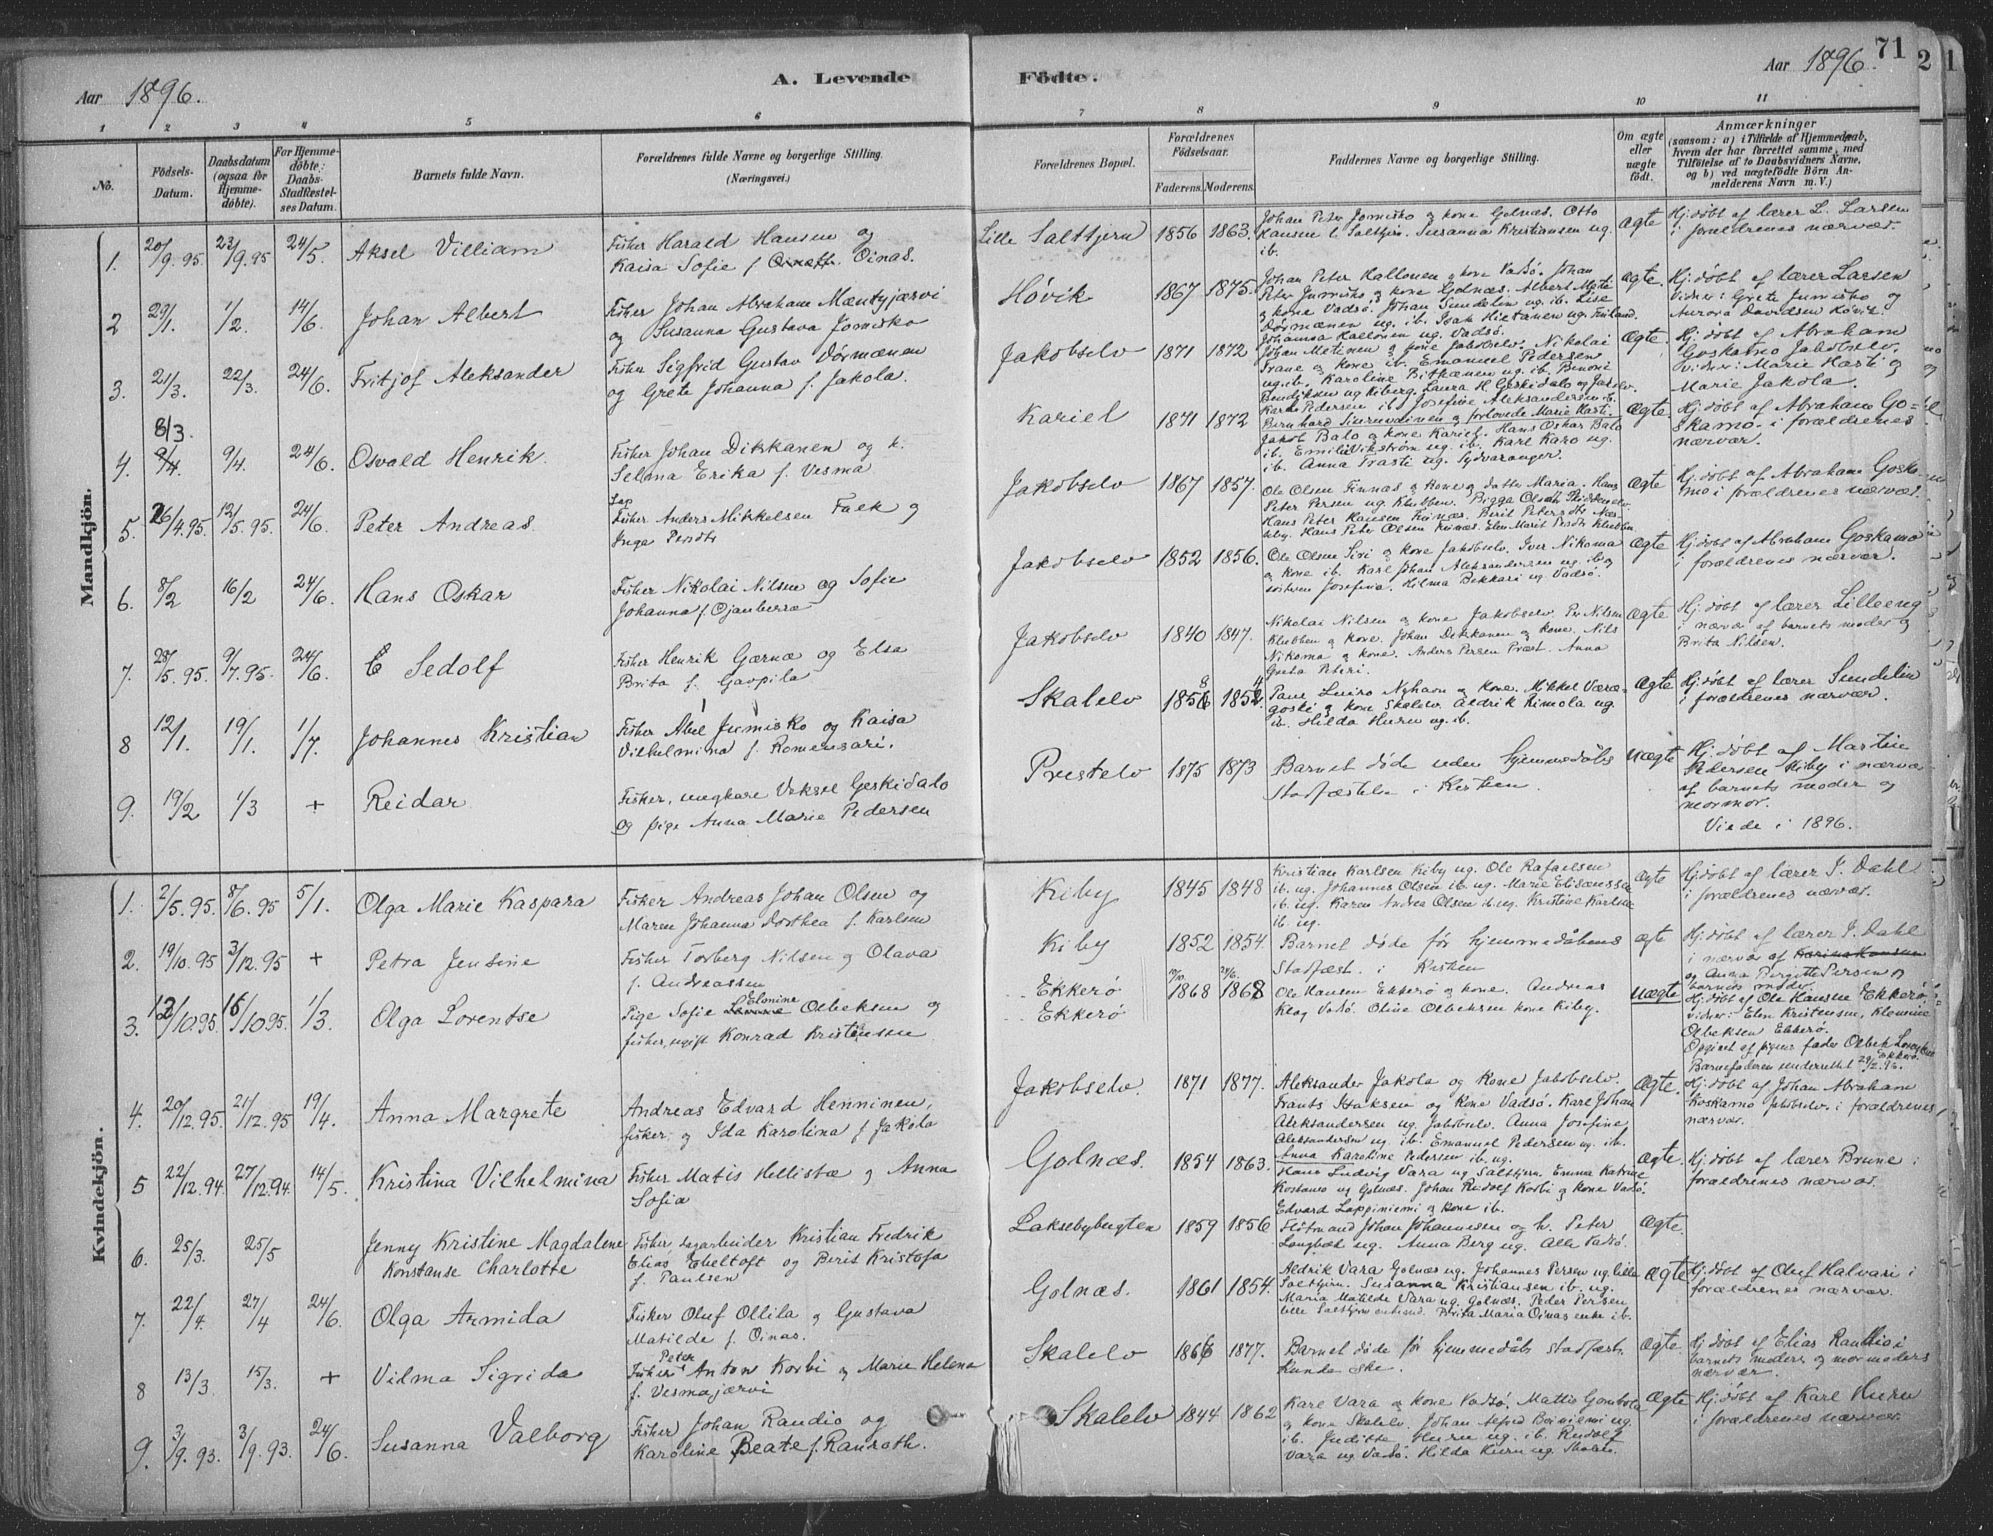 Aar 1896.
A. Levende
1 2 3 4 5 6
No.
Födsels-Datum.
Daabsdatum (ogsaa for Hjemmedöbte).
For Hjemmedöbte: Daabs-Stadfæstelses Datum.
Barnets fulde Navn.
Forældrenes fulde Navne og borgerlige Stilling.
(Næringsvei.)
Mandkjön.
1. 20/9.95 23/9.95 24/5. Aksel Villiam
Fisker Harald Hansen og
Kaisa Sofie f. Oinas.
2 29/1. 1/2. 14/6. Johan Albert
Fisker Johan Abraham Mæntyjærvi
og Susanna Gustava Jomisko
3. 21/3 22/3. 24/6. Fritjof Aleksander
Fisker Sigfrid Gustav Dørmænen
og Grete Johanna f. Jakola.
8/3.
4. 9/4. 9/4. 24/6. Osvald Henrik.
Fisker Johan Dikkanen og k.
Selma Erika f. Vesma
5. 26/4.95. 12/5.95. 24/6. Peter Andreas.
Lap
Fisker Anders Mikkelsen Falk og
Inga Persdtr
6. 8/2 16/2 24/6. Hans Oskar
Fisker Nikolai Nilsen og Sofie
Johanna f. Ojanberra
7. 28/5.95. 9/7.95. 24/6. Sedolf
Fisker Henrik Gærnæ og Elsa
Brita f. Gavpila
8 12/1. 19/1. 1/7. Johannes Kristian
Fisker Abel Jumisko og Kaisa
Vilhelmina f. Romensari.
9. 19/2 1/3 + Reidar
Fisker, ungkare Veksel Geskidalo
og pige Anna Marie Pedersen
Kvindekjön.
1. 2/5.95. 8/6.95 5/1. Olga Marie Kaspara
Fisker Andreas Johan Olsen og
Maren Johanna Dorthea f. Karlsen
2. 19/10.95 3/12.95 + Petra Jensine
Fisker Torberg Nilsen og Olava
f. Andreassen
3. 12/10.95 16/10.95. 1/3. Olga Lorentse
Elonine
Pige Sofie Olbeksen og
fisker, ugift Konrad Kristensen
4. 20/12.95. 21/12.95 19/4. Anna Margrete
Andreas Edvard Henninen,
fisker, og Ida Karolina f. Jakola
5 22/12.94. 27/12.94. 14/5. Kristina Vilhelmina
Fisker Matis Hellistæ og Anna
Sofia
6. 25/3. 25/5 Jenny Kristine Magdalene
Konstanse Charlotte
Fisker, sagarbeider Kristian Fredrik
Elias Ebeltoft og Berit Kristofa
f. Paulsen
7. 22/4. 27/4 24/6. Olga Armida
Fisker Oluf Ollila og Gustava
Matilde f. Oinas.
8 13/3 15/3. + Vilma Sigrida
Peter
Fisker Anton Korbi og Marie Helena
f. Vesmajærvi
9. 3/9.93. 3/9.93. 24/6. Susanna Valborg
Fisker Johan Raudio og
Karoline Beate f. Ranroth.
Födte.
Aar 1896.
71
2
1
7 8 9 10 11
Forældrenes Bopæl.
Forældrenes Födselsaar.
Faderens. Moderens.
Faddernes Navne og borgerlige Stilling.
Om ægte eller uægte födt.
Anmærkninger
(saasom: a) i Tilfælde af Hjemmedaab, hvem der har forrettet samme, med Tilföielse af to Daabsvidners Navne, og b) ved uægtefödte Börn Anmelderens Navn m. V.)
Lille Saltbjern 1856 1863.
Johan Peter Jomisko og kone Golnæs. Otto
Hansen l. Saltbjn. Susanna Kristiansen ug.
ib.
Ægte
Hj.døbt af lærer L. Larsen
i forældrenes nærvær.
Høvik 1867 1875.
Johan Peter Hallonen og kone Vadsø. Johan
Peter Jumisko og kone Golnæs. Albert Mete
og kone Vadsø. Johan Sundelin ug. ib. Lise
Dørmænen ug. ib. Isak Hietanen ug. Finland.
Johanna Hallonen ug. Vadsø.
Ægte.
Hj.døbt af lærer Larsen
Vidner: Grete Jumisko og
Aurora Davidsen Høvik.
Jakobselv 1871 1872
Johan Metenen og kone Jakobselv. Nikolai
Trane og kone ib. Emanuel Pedersen
ug. ib. Karoline Pitkænen ug. ib. Benoni
Bendiksen ug Kiberg. Laura H. Geskidalo ug Jakselv.
Karen Pedersen ib. Josefine Aleksandersen ib.
Ægte.
Hj.døbt af Abraham
Goskamo Jakobselv.
Vidner: Marie Hasti og
Marie Jakola.
Kariel 1871 1872
Bernhard Siurundinen og forlovede Marie Hasti.
Jakob Balo og kone Kariel. Hans Oskar Balo
ib. Emilie Vikstrøm ug. ib. Karl Karo ug.
ib. Anna Trasti ug. Sydvaranger.
Ægte.
Hj.døbt af Abraham Go-
skamo. i forældrenes
nærvær.
Jakobselv 1867 1857.
Ole Olsen Finnæs og kone og datter Maria. Hans
Peter Persen ug Klubben. Bigga Olsdtr
Hans Peter Hansen Finnæs. Berit Petersdtr Næs-
seby. Hans Peter Olsen Finnæs. Elen Marit Persdtr Klubben
Ægte
Hj.døbt af Abraham Gosk-
mo i forældrenes nærvær.
Jakobselv 1852 1856.
Ole Olsen Siri og kone Jakobselv. Iver Nikoma
og kone ib. Karl Johan Aleksandersen ug. ib og
søsteren Josefine. Hilma Bekkari ug. Vadsø.
Ægte
Hj.døbt af Abraham Goskamo
i forældrenes nærvær.
Jakobselv 1840 1847.
Nikolai Nilsen og kone Jakobselv. Per Nilsen
Klubben og kone. Johan Dikkanen og kone. Nils
Nikoma og kone. Anders Persen Præst. Anna
Greta Peteri.
Ægte
Hj.døbt af lærer Lilleeng
i nærvær af barnets moder og
Brita Nilsen.
Skalelv 1858 1854.
Paul Luiro Nyhavn og kone. Mikkel Være-
goski og kone Skalelv. Aldrik Rimola ug.
ib. Hilda Huru ug. ib.
Ægte
Hj.døbt af lærer Sundelin
i forældrenes nærvær.
Prestelv 1875 1873
Barnet døde uden hjemmedåbs
Stadfæstelse i Kirken.
Uægte
Hj.døbt af Martin
Pedersen Kiby i nærvær
af barnets moder og
mormor.
Viede i 1896.
Kiby 1845 1848
Kristian Karlsen Kiby ug. Ole Rafaelsen
ib. ug. Johannes Olsen ib. ug. Marie Eliseussen
ib. ug. Karen Andrea Olsen ib. ug. Kristine Karlsen
ib. ug.
Ægte
Hjdøbt af lærer J. Dahl
i forældrenes nærvær.
Kiby 1852 1854.
Barnet døde før hjemmedåbens
Stadfæst. i Kirken
Ægte
Hj.døbt af lærer J. Dahl
i nærvær af Karina Hansen
og Anna Birgitte Persen og
barnets moder.
Ekkerø 1868 1868
Ekkerø
Ole Hansen Ekkerø og kone. Andreas
Klag Vadsø. Oline Olbeksen kone Kiby.
Uægte
Hj.døbt af Ole Hansen Ekkerø
vidner: Elen Kristensen, Klemine
Olbeksen Ekkerø.
Opgivet af pigens fader Olbek Ekkerø.
Barnefaderen underrettet 29/2.96.
Jakobselv. 1871 1877.
Aleksander Jakola og kone Jakobselv.
Frants Isaksen og kone Vadsø. Karl Johan
Aleksandersen ug. Jakobselv. Anna Josefine
Aleksandersen ug ib. Emanuel Pedersen ug. ib.
Anna Karoline Pedersen ib. ug.
Ægte.
Hj.døbt af Johan Abraham
Koskamo Jakobselv. i forældrenes
nærvær.
Golnæs. 1854 1863.
Hans Ludvig Vara ug Saltbjern. Emma Katrine
Kostamo ug Golnæs. Johan Rudolf Korbi og kone Vadsø.
Edvard Lappiniemi og kone ib.
Ægte.
Hj.døbt af lærer Brune i
forældrenes nærvær.
Laksebybugten 1859 1856
Slotmand Johan Johannesen og h. Peter
Langbæk ug. Anna Berg ug. Alle Vadsø.
Ægte.
Golnæs. 1861 1854.
Aldrik Vara Golnæs ug. Johannes Persen ug. lille
Saltbjrn. Susanna Kristiansen ib. ug.
Maria Matilde Vara ug. Golnæs. Peder Persen
lille Saltbjrn enkemd. Brita Maria Oinas enke ib.
Ægte
Hj.døbt af Oluf Halvari i
forældrenes nærvær.
Skalelv 1866 1877.
Barnet døde før hjemmedåbs stadfæst.
kunde ske.
Ægte.
Hj.døbt af Elias Raudio i
barnets moders og mormoders
nærvær.
Skalelv 1844 1862
Karl Vara og kone Vadsø. Mattis Gombola
og kone Skalelv. Johan Alfred Beiniemi ug.
ib. Juditte Huru ug. ib. Rudolf
Vara ug. Vadsø. Hilda Huru ug. Skalelv.
Ægte
Hj.døbt af Karl Huru
i forældrenes nærvær.